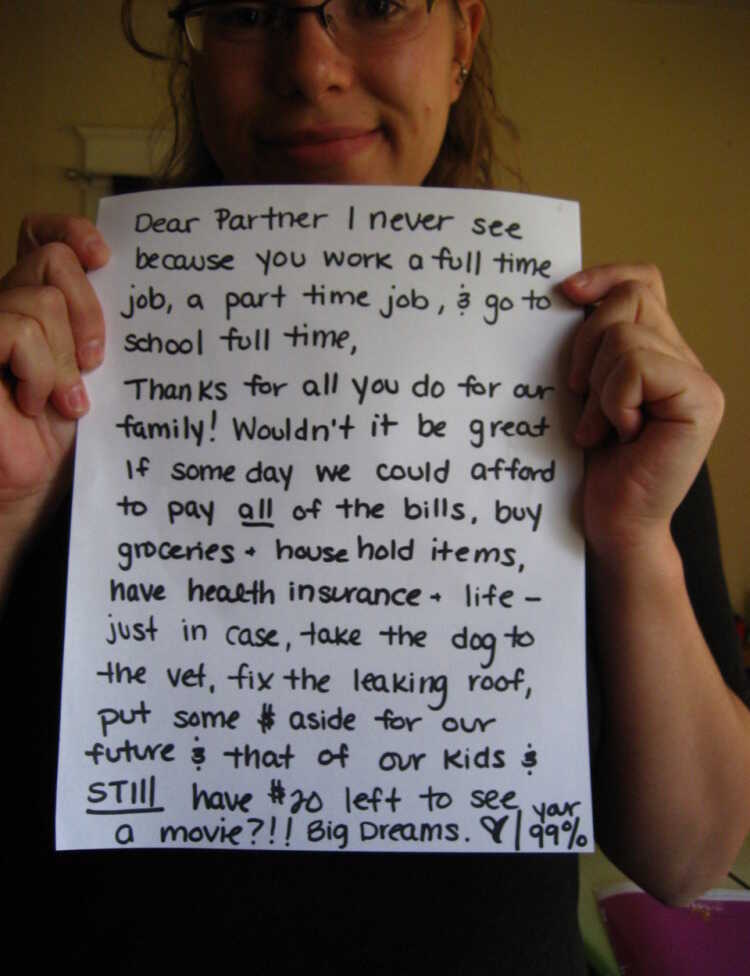 Dear Partner I never see
because you work a full time
job, a part time job, & go to
school full time,
Thanks for all you do for our
family! Wouldn't it be great
If some day we could afford
to pay all of the bills, buy
groceries + house hold items,
have health insurance + life -
just in case, take the dog to
the vet, fix the leaking roof,
put some $ aside for our
future & that of our kids &
STIll have $20 left to see
a movie?!! Big Dreams. ♥ | your
99%